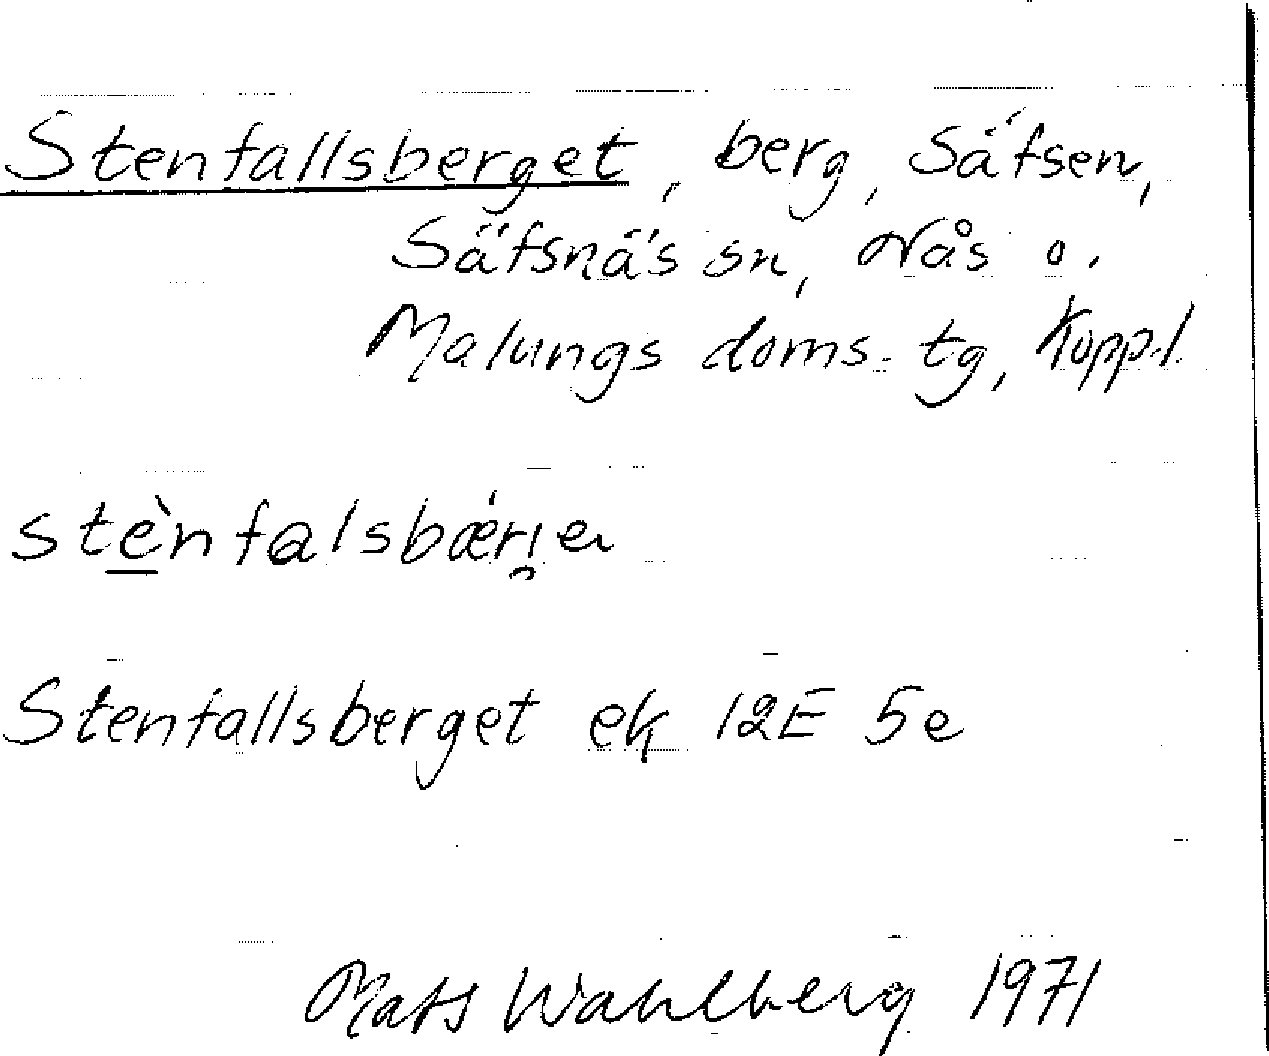 Stenfallsberget, berg, Säfsen,
Säfsnäs sn, Nås o.
Malungs doms. tg, Kopp.l.
stènfalsbǽri̯er
Stenfallsberget ek 12E 5e
Mats Wahlberg 1971